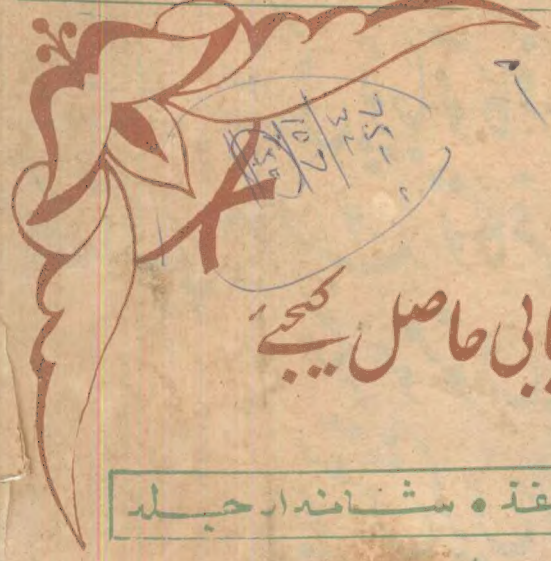 یابی حاصل کیجئے
غذ • شاندار جلد